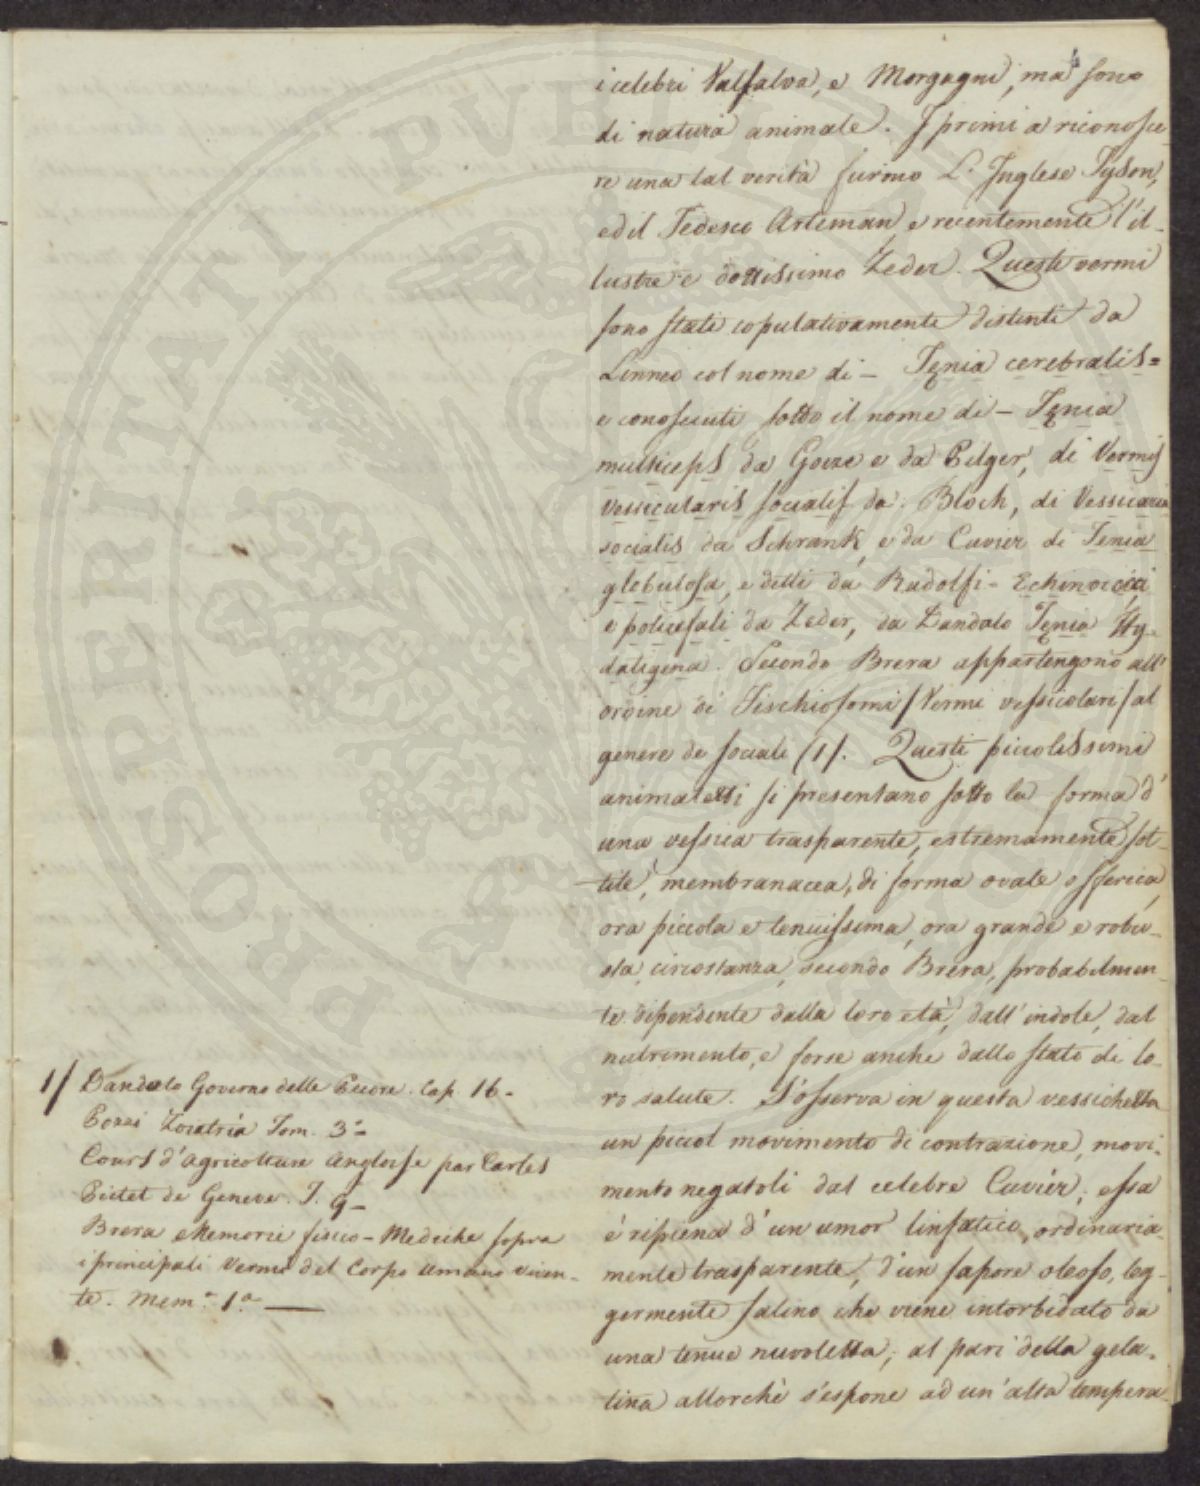 i celebri Valsalva, e Morgagni, ma sono
di natura animale. I primi a riconosce
re una tal verità furino L' Inglese Tyson,
ed il Tedesco Arteman, e recentemente l'il-
lustre e dottissimo Zeder. Questi vermi
sono stati copulativamente distinti da
Linneo col nome di - Tenia cerebralis =
e conosciuti sotto il nome di - Tenia
multiceps da Goeze e da Pilger, di Vermis
vessicularis socialis da Bloch, di Vessicaria
socialis da Schrank, e da Cuvier di Tenia
globulosa, e detti da Rudolfi - Echinococci
e policefali da Zeder, da Dandalo Tenia Hy-
datigena. Secondo Brera appartengono all'
ordine di Fischiosomi / Vermi vessicolari / al
genere de sociali (1/. Questi piccolissimi
animaletti si presentano sotto la forma d'
una vessica trasparente, estremamente sot-
tile, membranacea, di forma ovale o sferica,
ora piccola e tenuissima, ora grande e robu-
sta, circostanza, secondo Brera, probabilmen-
te dipendente dalla loro età, dall'indole, dal
nutrimento, e forse anche dallo stato di lo-
ro salute. S'osserva in questa vessichetta
un piccol movimento di contrazione, movi-
mento negatoli dal celebre Cuvier; essa
è ripiena d'un umor linfatico, ordinaria-
mente trasparente, d'un sapore oleoso, leg-
germente salino che viene intorbidato da
una tenue nuvoletta, al pari della gela-
tina allorchè s'espone ad un'alta tempera-
1/ Dandolo Governo delle Pecore. Cap. 16-
Pozzi Zoiatria Tom. 3°-
Cours d'agricolture Angloise par Carles
Pictet de Geneve. T. 9-
Brera Memorie fisico-Mediche sopra
i principali Vermi del Corpo umano viven-
te. Mem.a 1.a
PROSPERITATI PUBLICAE